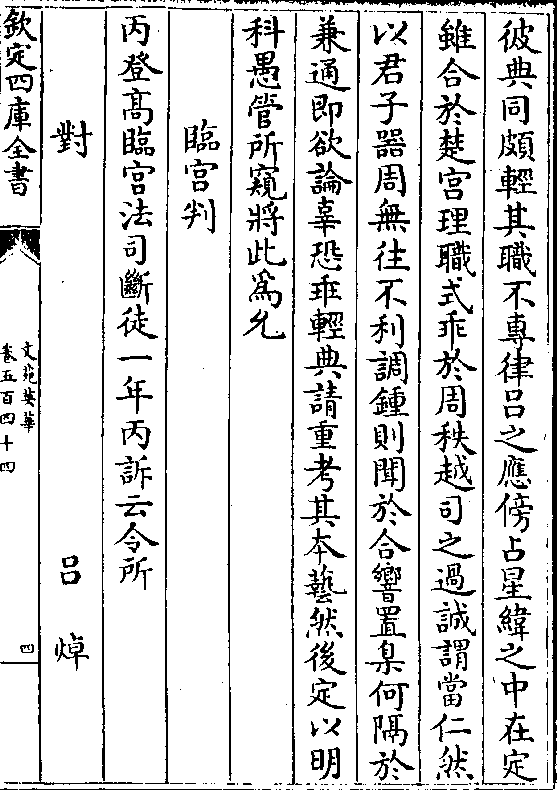 彼典同頗輕其職不專律呂之應傍占星緯之中在定
雖合於楚宮理職式乖於周秩越司之過誠謂當仁然
以君子器周無往不利調鍾則聞於合響置臬何隔於
兼通即欲論辜恐乖輕典請重考其本藝然後定以明
科愚管所窺將此為允
臨宮判
丙登髙臨宮法司斷徒一年丙訴云令所
對　呂焯
欽定四庫全書
文苑英華
卷五百四十四
四